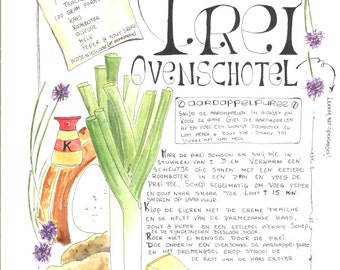 100 gram parm
kaas
roomboter
olijfolie
melk
peper & zout
bieslook
Prei
ovenschotel
aardappelpuree
Snijd de aardappelen in blokjes en
kook ze gaar. Giet de aardappelen
af en voeg een klontje roomboter en
wat peper & zout toe. Stamp tot
puree met wat melk
Maak de prei schoon en snij die in
stukken van ± 3 cm. Verwarm een
scheutje olie samen met een eetlepel
roomboter in een pan en voeg de
prei toe. Schep regelmatig om. Voeg peper
en zout naar smaak toe. Laat ± 15 min
smoren op laag vuur.
Klop de eieren met de crème fraîche
en de helft van de parmezaanse kaas,
zout & peper en een eetlepel
de fijngesneden bieslook door
het ei mengsel door de prei
Doe onderin een ovenschaal de aardappelpuree
en het preimengsel erop. Strooi de
de rest van de kaas erover.
K